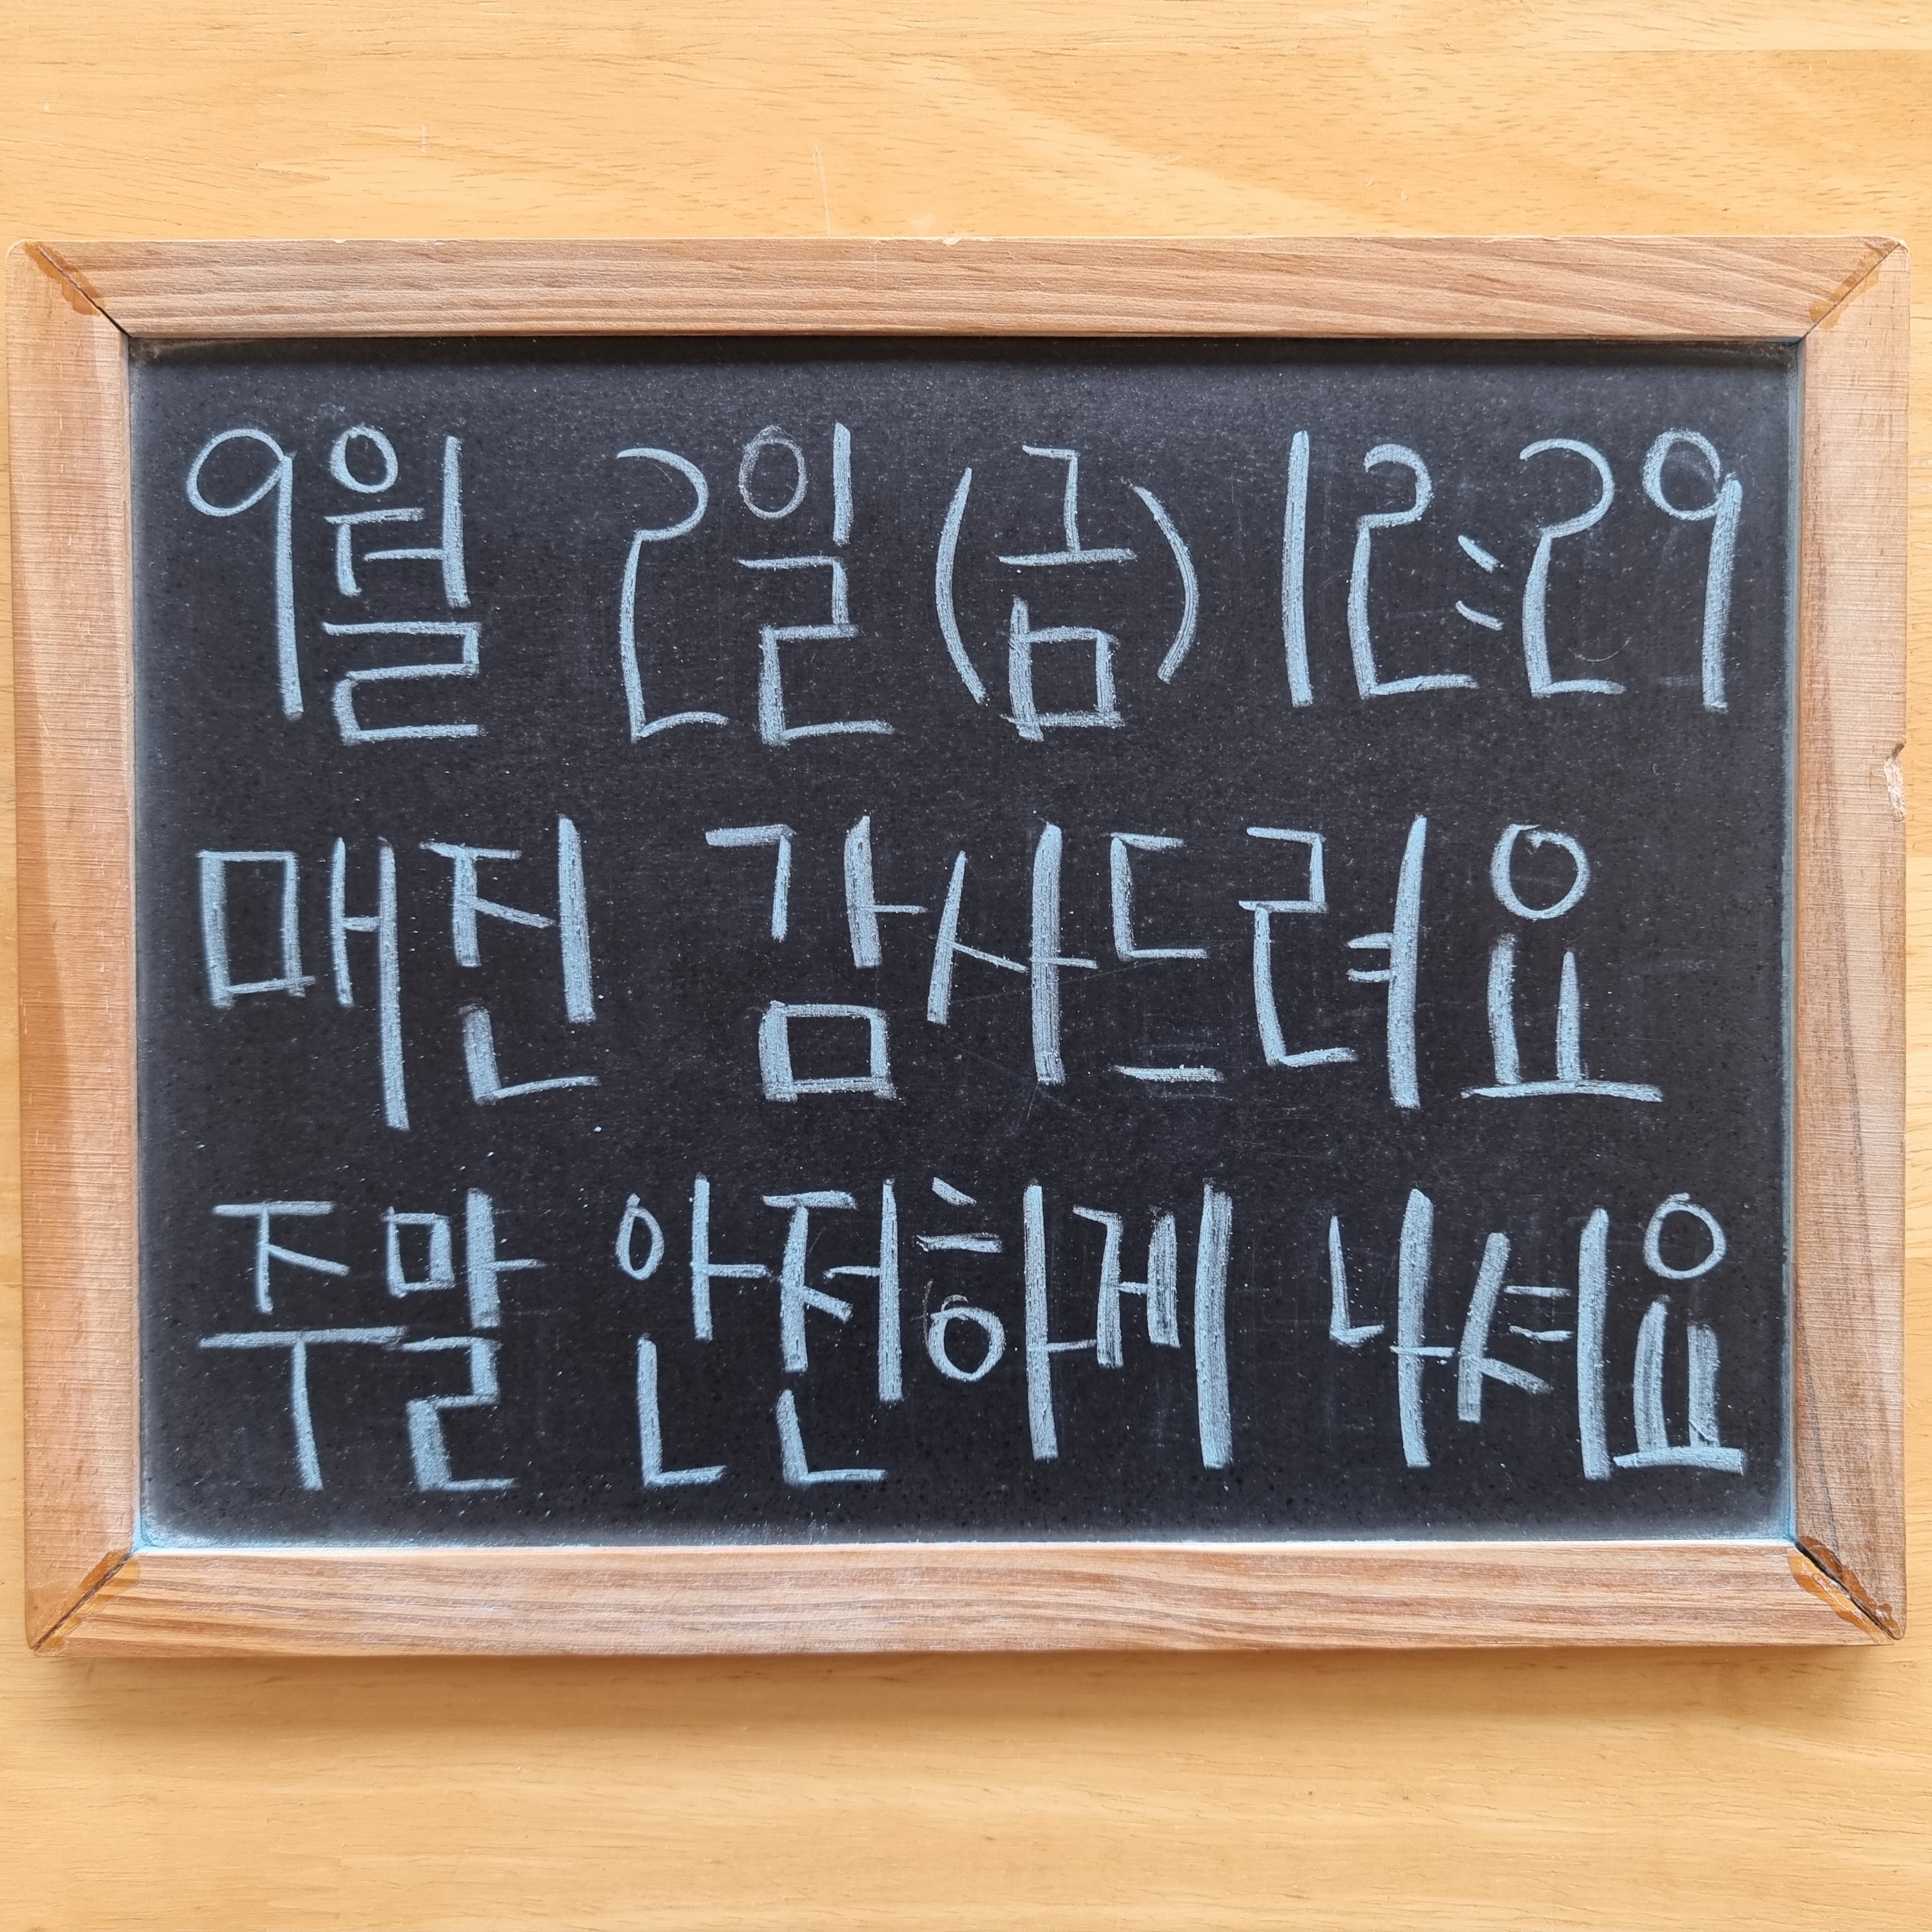 9월 2일(금) 12:29
매진 감사드려요
주말 안전하게 나셔요